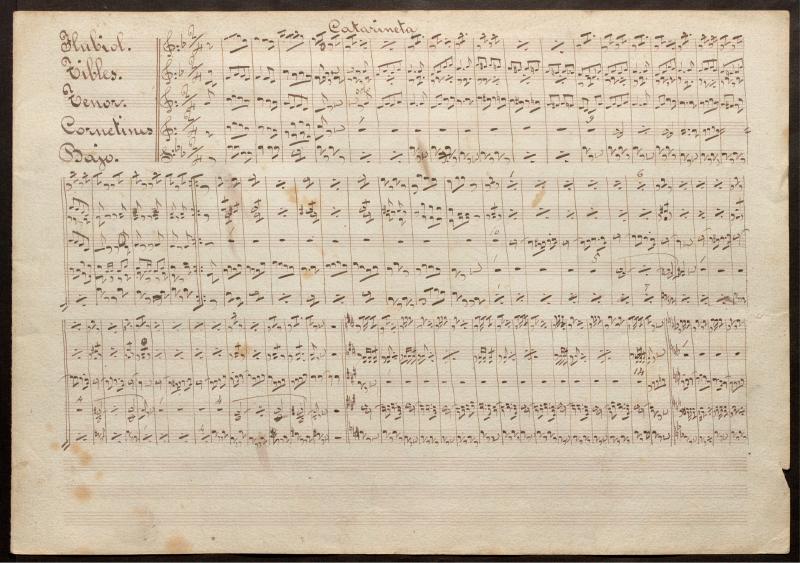 Catarineta
Flubiol.
Tibles.
Tenor.
Cornetines
Bajo.